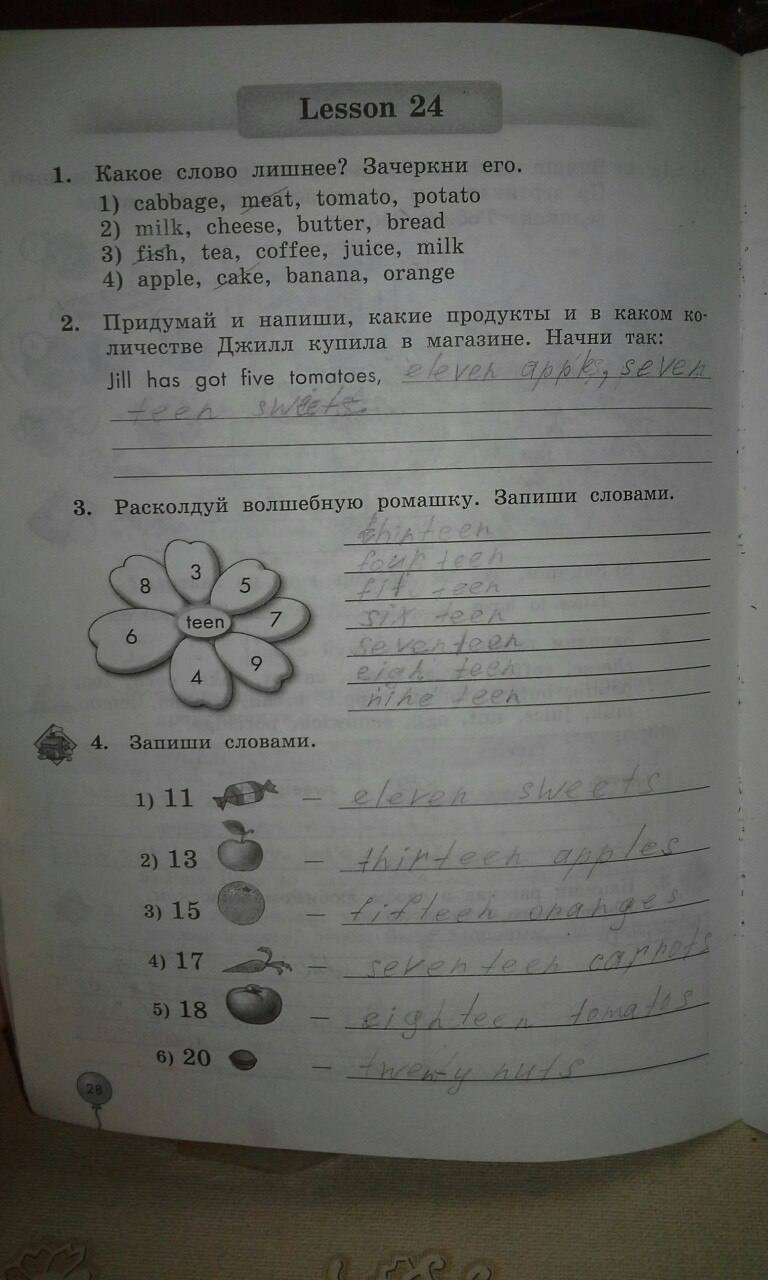 Lesson 24
1. Какое слово лишнее? Зачеркни его.
1) cabbage, meat, tomato, potato
2) milk, cheese, butter, bread
3) fish, tea, coffee, juice, milk
4) apple, cake, banana, orange
2. Придумай и напиши, какие продукты и в каком ко-
личестве Джилл купила в магазине. Начни так:
Jill has got five tomatoes, eleven apples, seven
teen sweets.
3. Расколдуй волшебную ромашку. Запиши словами.
8 3 5
6 teen 7
4 9
thirteen
four teen
fif teen
six teen
seventeen
eigh teen
nine teen
4. Запиши словами.
1) 11 – eleven sweets
2) 13 – thirteen apples
3) 15 – fifteen oranges
4) 17 – seventeen carrots
5) 18 – eighteen tomatos
6) 20 – twenty nuts
28